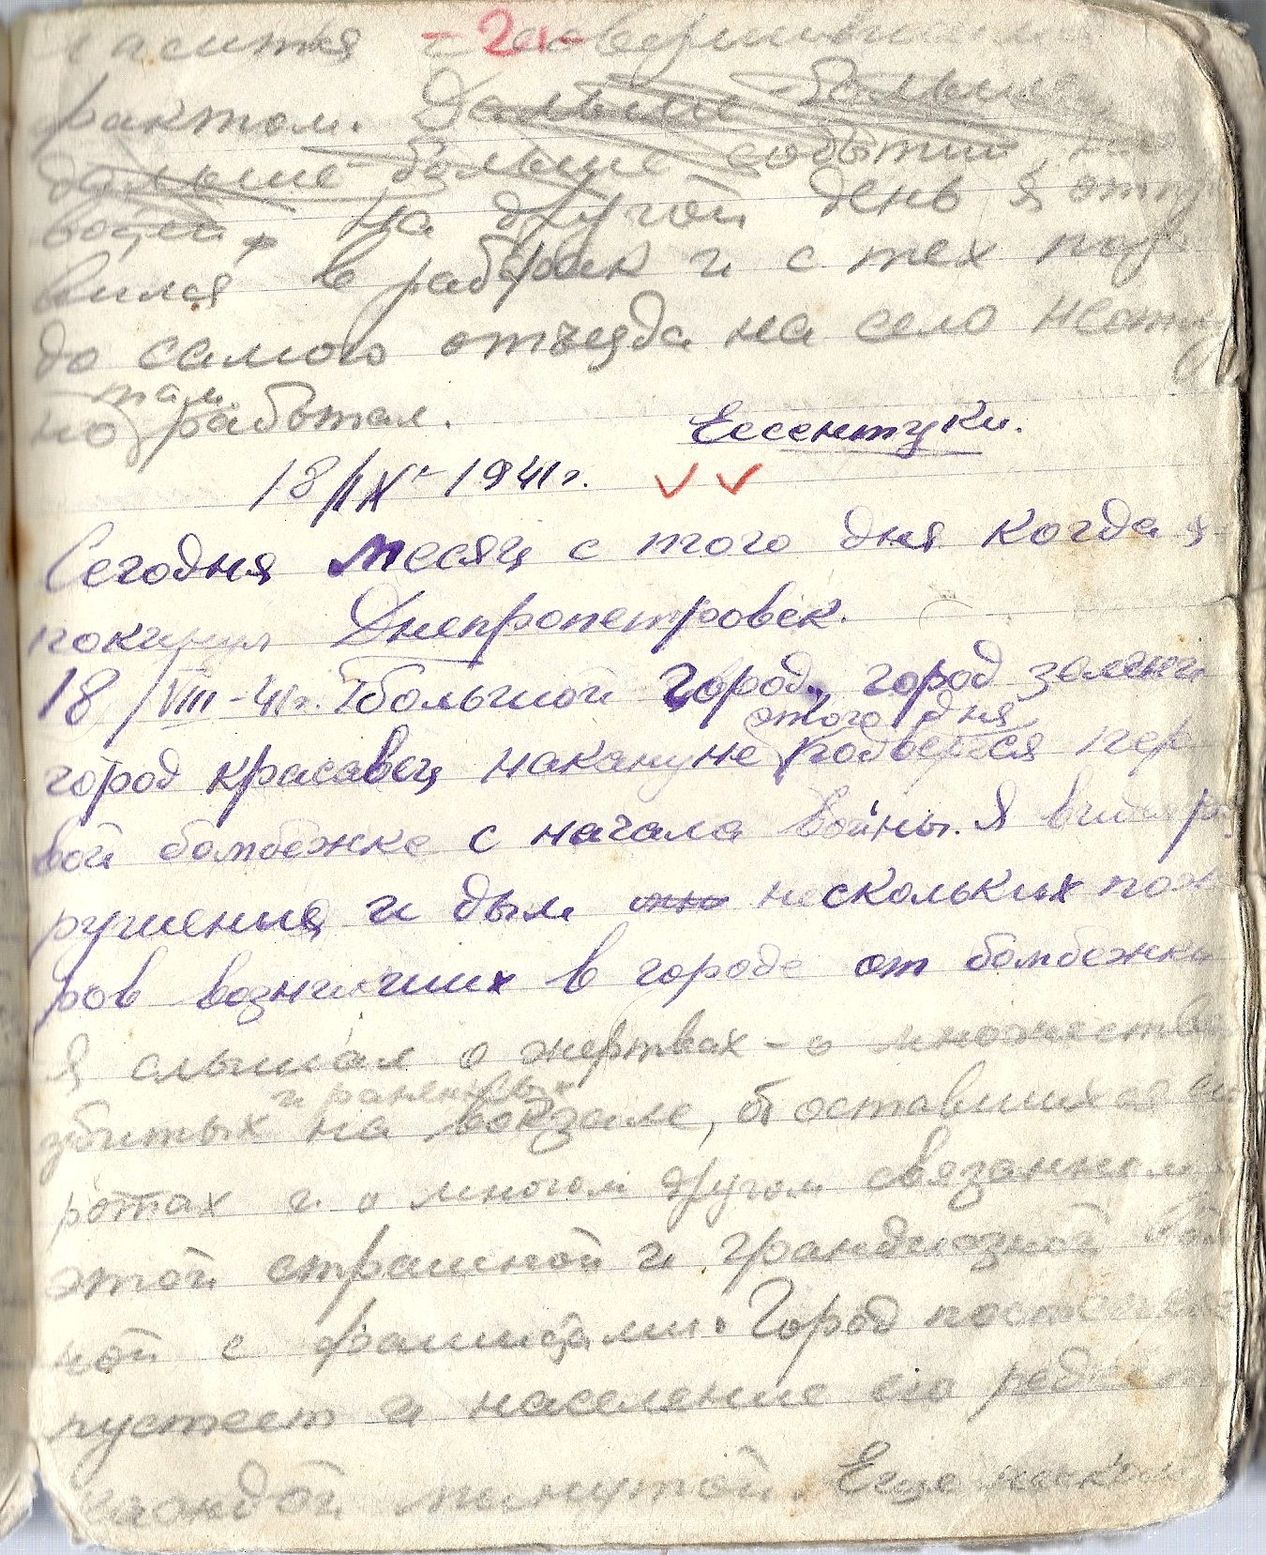 -2-
фактом. Дальше - больше
дальше - больше событий,
войн, на другой день я отпр
вился в рабфак и с тех пор
до самого отъезда на село неотлу
там
но работал.
Ессентуки.
18/IX-1941г.
Сегодня месяц с того дня когда я
покинул Днепропетровск.
18/VIII-41г. большой город, город зелени
этого дня
город красавец накануне подвергся пер
вой бомбежке с начала войны. Я видел раз
рушения и дым нескольких пожа
ров возникших в городе от бомбежки
Я слышал о жертвах - о множестве
и раненых
убитых на вокзале, об оставшихся си
ротах и о многом другом связанном с
этой страшной и грандиозной бой
ной с фашистами. Город постепенно
пустеет и население его редеет
каждой минутой. Еще